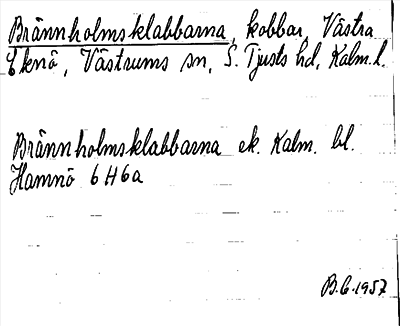 Brännholmsklabbarna, kobbar, Västra
Eknö, Västrums sn, S. Tjusts hd, Kalm. l.
Brännholmsklabbarna ek. Kalm. bl.
Hamnö 6H6a
B.C. 1957